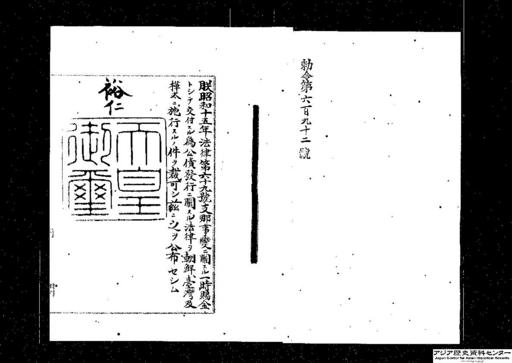 勅令第六百九十二號
朕昭和十五年法律第六十九號支那事變ニ關スル一時賜金
トシテ交付スル爲公債發行ニ關スル法律ヲ朝鮮臺灣及
樺太ニ施行スルノ件ヲ裁可シ茲ニ之ヲ公布セシム
裕仁
天皇
御璽
アジア歴史資料センター
Japan Center for Asian Historical Records